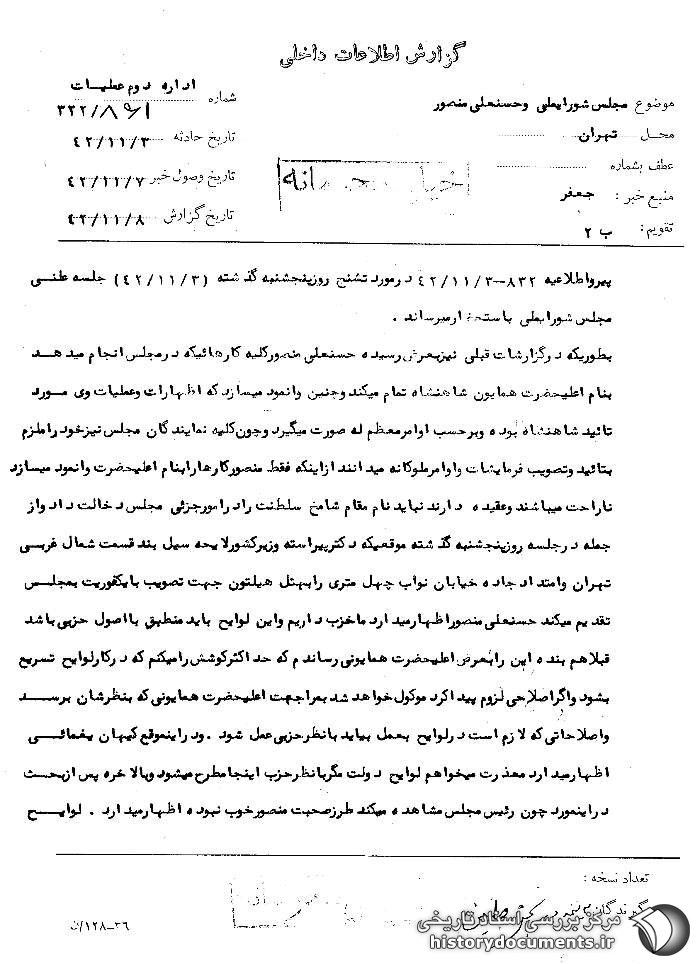 گزارش اطلاعات داخلی
اداره دوم عملیات
موضوع مجلس شورایملی وحسنعلی منصور
شماره ۳۲۲/۸۶۱
محل تهران
تاریخ حادثه ۴۲/۱۱/۳
عطف بشماره
تاریخ وصول خبر ۴۲/۱۱/۷
منبع خبر : جعفر
تاریخ گزارش ۴۲/۱۱/۸
تقویم : ب ۲
پیرواطلاعیه ۸۳۲–۴۲/۱۱/۳ درمورد تشنج روزپنجشنبه گذشته (۴۲/۱۱/۳) جلسه علنی
مجلس شورایملی باستحضارمیرساند .
بطوریکه درگزارشات قبلی نیزبعرض رسیده حسنعلی منصورکلیه کارهائیکه درمجلس انجام میدهد
بنام اعلیحضرت همایون شاهنشاه تمام میکند وچنین وانمود میسازد که اظهارات وعملیات وی مورد
تائید شاهنشاه بوده وبرحسب اوامرمعظم له صورت میگیرد وچون کلیه نمایندگان مجلس نیزخود راملزم
بتائید وتصویب فرمایشات واوامرملوکانه میدانند ازاینکه فقط منصورکارهارابنام اعلیحضرت وانمود میسازد
ناراحت میباشند وعقیده دارند نباید نام مقام شامخ سلطنت رادرامورجزئی مجلس دخالت داد واز
جمله درجلسه روزپنجشنبه گذشته موقعیکه دکترپیراسته وزیرکشورلایحه سیل بند قسمت شمال غربی
تهران وامتداد جاده خیابان نواب چهل متری رابهتل هیلتون جهت تصویب بایکفوریت بمجلس
تقدیم میکند حسنعلی منصوراظهارمیدارد ماحزب داریم واین لوایح باید منطبق بااصول حزبی باشد
قبلاهم بنده این رابعرض اعلیحضرت همایونی رساندم که حداکثرکوشش رامیکنم که درکارلوایح تسریع
بشود واگراصلاحی لزوم پیداکرد موکول خواهد شد بمراجهت اعلیحضرت همایونی که بنظرشان برسد
واصلاحاتی که لازم است درلوایح بعمل بیاید بانظرحزبی عمل شود . ودراینموقع کیهان یغمائی
اظهارمیدارد معذرت میخواهم لوایح دولت مگربانظرحزب اینجامطرح میشود وبالاخره پس ازبحث
دراینمورد چون رئیس مجلس مشاهده میکند طرزصحبت منصورخوب نبوده اظهارمیدارد . لوایح
تعداد نسخه :
گیرندگان
۳۶–۱۲۸/ن
مرکز بررسی اسناد تاریخی
historydocuments.ir